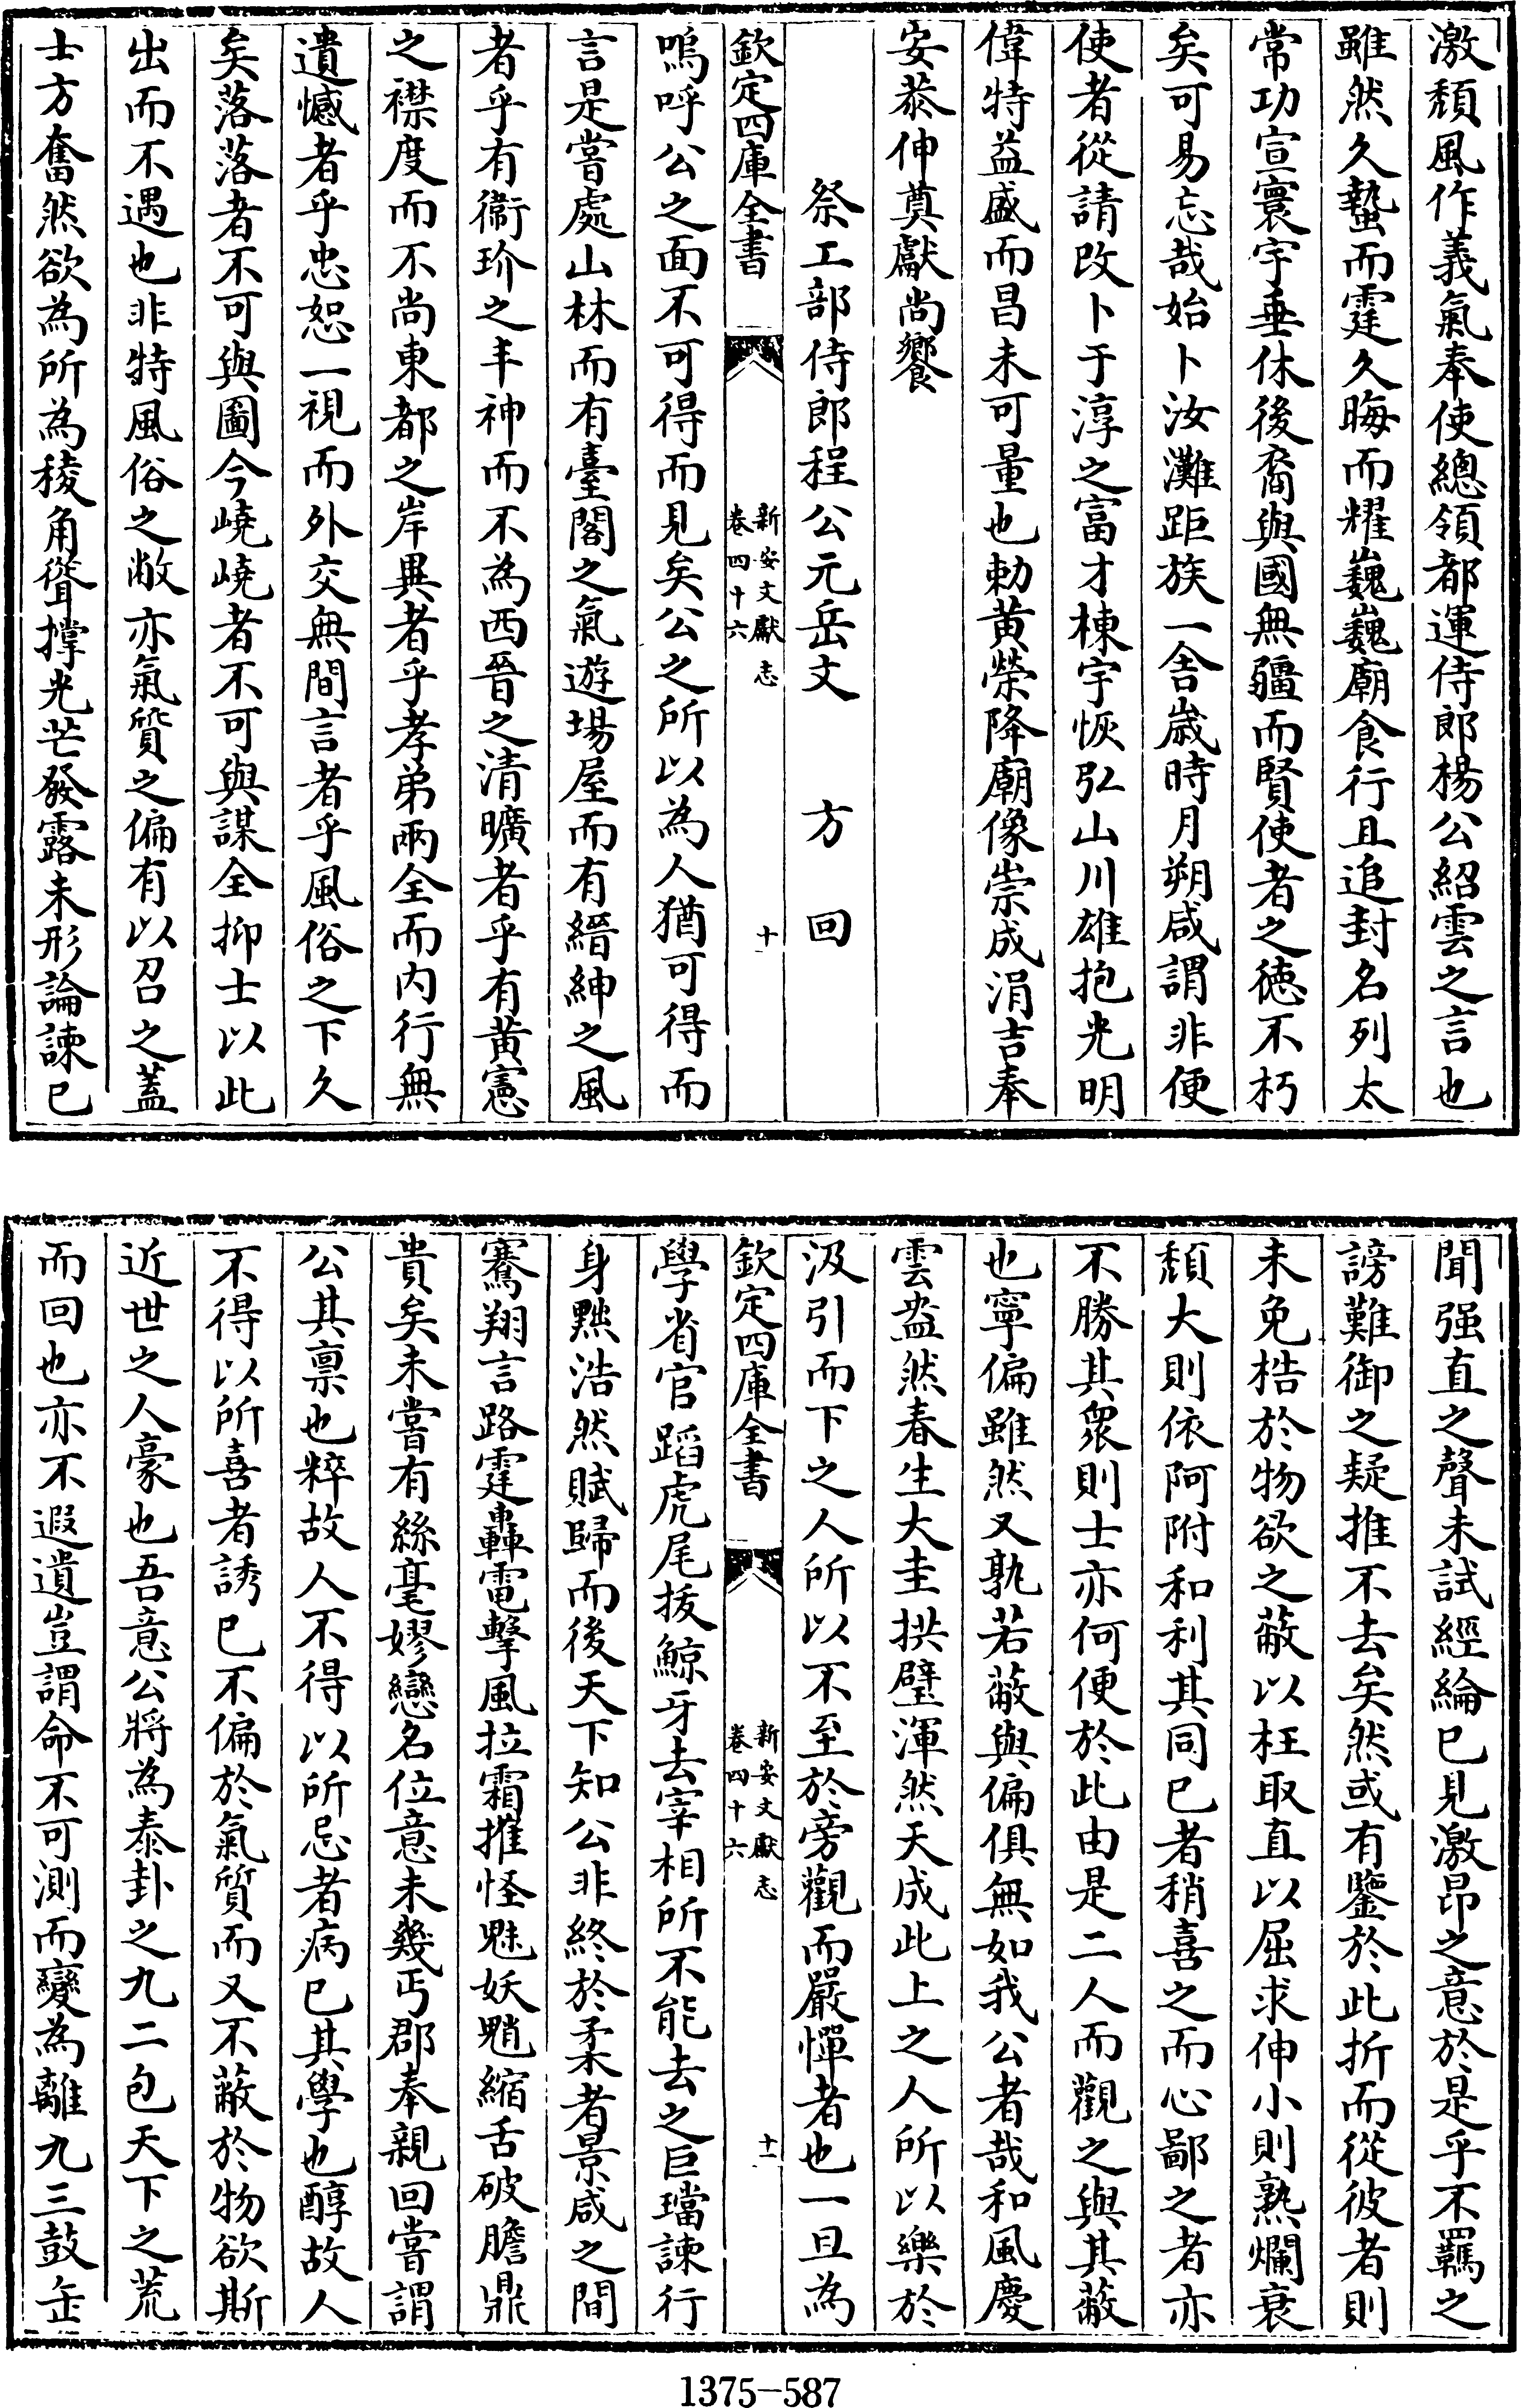 激頹風作義氣奉使總領都運侍郎楊公紹雲之言也
雖然久蟄而霆久晦而耀巍巍廟食行且追封名列太
常功宣寰宇垂休後裔與國無疆而賢使者之徳不朽
矣可易忘哉始卜汝灘距族一舎歲時月朔咸謂非便
使者從請改卜于淳之富才棟宇恢弘山川雄抱光明
偉特益盛而昌未可量也勅黄榮降廟像崇成涓吉奉
安恭伸奠獻尚饗
祭工部侍郎程公元岳文　方　回
欽定四庫全書　新安文獻志　卷四十六　十
嗚呼公之面不可得而見矣公之所以為人猶可得而
言是嘗處山林而有臺閣之氣遊場屋而有縉紳之風
者乎有衞玠之丰神而不為西晉之清曠者乎有黄憲
之襟度而不尚東都之岸異者乎孝弟兩全而内行無
遺憾者乎忠恕一視而外交無間言者乎風俗之下久
矣落落者不可與圖今嶢嶢者不可與謀全抑士以此
出而不遇也非特風俗之敝亦氣質之偏有以召之蓋
士方奮然欲為所為稜角聳撑光芒發露未形論諫已
聞强直之聲未試經綸已見激昂之意於是乎不羈之
謗難御之疑推不去矣然或有鑒於此折而從彼者則
未免梏於物欲之蔽以枉取直以屈求伸小則熟爛衰
頹大則依阿附和利其同已者稍喜之而心鄙之者亦
不勝其衆則士亦何便於此由是二人而觀之與其蔽
也寧偏雖然又孰若蔽與偏俱無如我公者哉和風慶
雲盎然春生大圭拱璧渾然天成此上之人所以樂於
汲引而下之人所以不至於旁觀而嚴憚者也一旦為
欽定四庫全書　新安文獻志　卷四十六　十一
學省官蹈虎尾拔鯨牙去宰相所不能去之巨璫諫行
身黜浩然賦歸而後天下知公非終於柔者景咸之間
騫翔言路霆轟電擊風拉霜摧怪魅妖魈縮舌破膽鼎
貴矣未嘗有絲毫嫪戀名位意未幾丐郡奉親回嘗謂
公其禀也粹故人不得以所忌者病已其學也醇故人
不得以所喜者誘已不偏於氣質而又不蔽於物欲斯
近世之人豪也吾意公將為泰卦之九二包天下之荒
而回也亦不遐遺豈謂命不可測而變為離九三鼓缶
1375-587